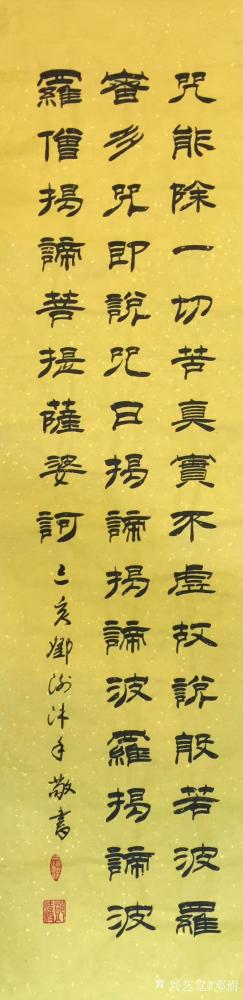 咒能除一切苦真實不虛故說般若波羅
蜜多咒即說咒曰揭諦揭諦波羅揭諦波
羅僧揭諦菩提薩婆訶
己亥鄧澍沐手敬書